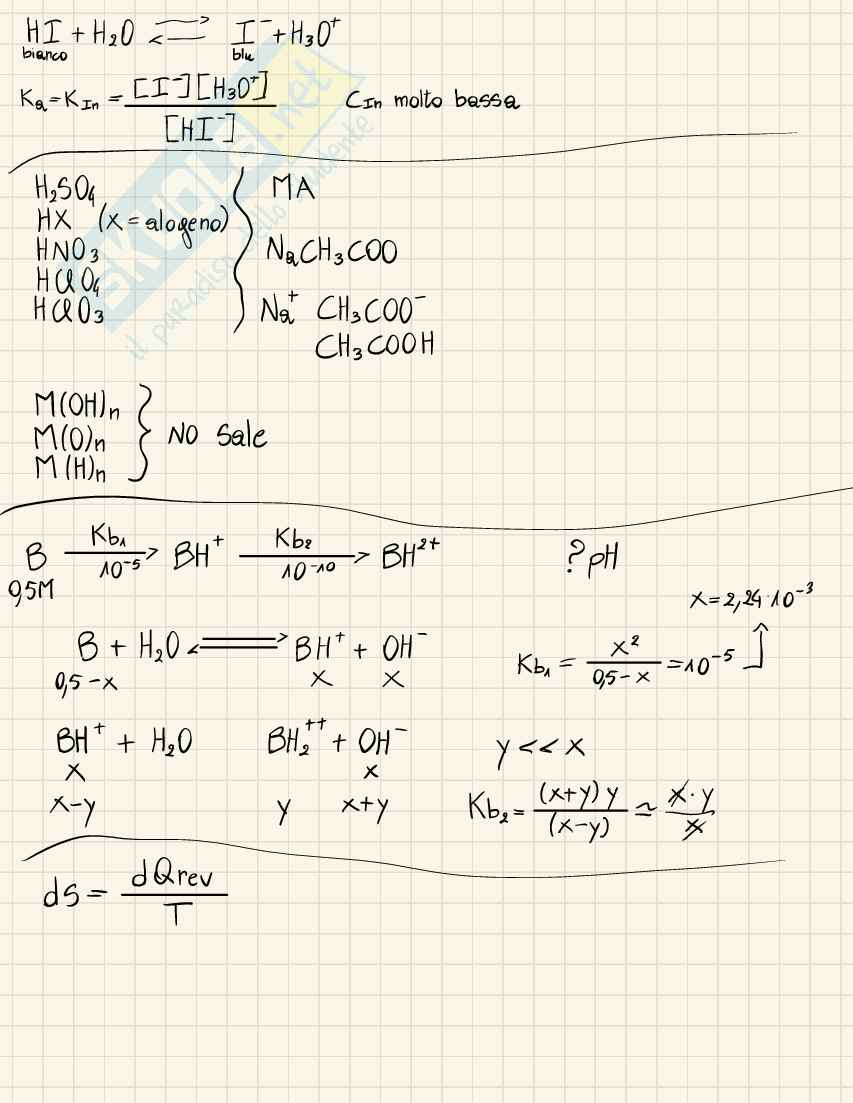 HI + H2O ⇌ I⁻ + H3O⁺
bianco blu
Ka = KIn = [I⁻][H3O⁺] / [HI⁻] CIn molto bassa
SKUOLA.net
il paradiso dello studente
H2SO4
HX (X = alogeno)
HNO3
HClO4
HClO3
MA
NaCH3COO
Na⁺ CH3COO⁻
CH3COOH
M(OH)n
M(O)n
M(H)n
NO sale
B —Kb1 10⁻⁵→ BH⁺ —Kb2 10⁻¹⁰→ BH²⁺ ? pH
0,5M
x = 2,24·10⁻³
B + H2O ⇌ BH⁺ + OH⁻ Kb1 = x² / 0,5 - x = 10⁻⁵
0,5 - x x x
BH⁺ + H2O BH2⁺⁺ + OH⁻ y << x
x x
x - y y x + y Kb2 = (x + y) y / (x - y) ≃ x · y / x
dS = dQrev / T